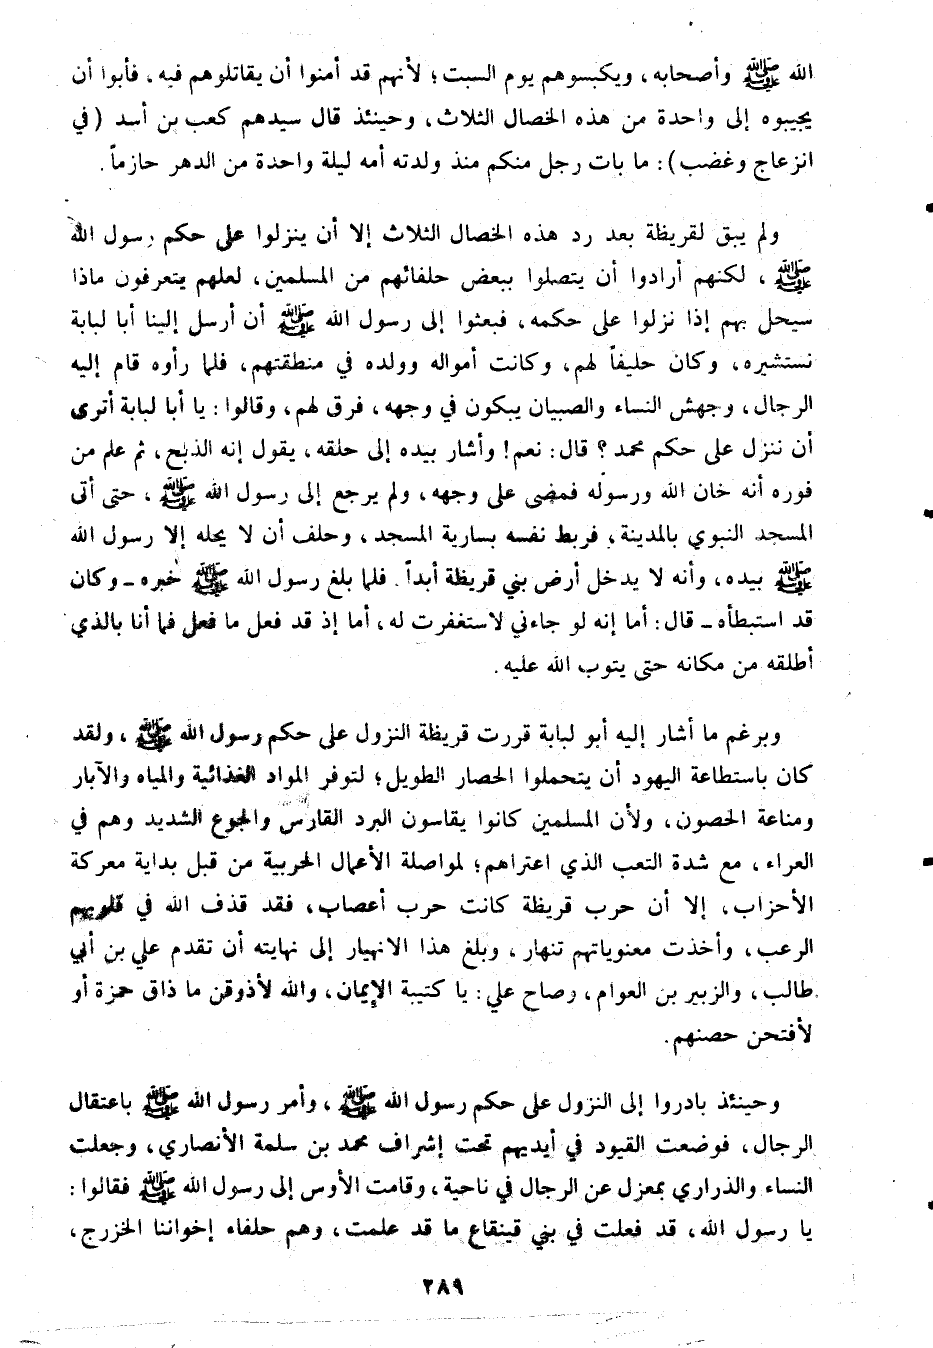 الله ﷺ وأصحابه، ويكبسوهم يوم السبت؛ لأنهم قد أمنوا أن يقاتلوهم فيه، فأبوا أن
يجيبوه إلى واحدة من هذه الخصال الثلاث، وحينئذ قال سيدهم كعب بن أسد (في
انزعاج وغضب): ما بات رجل منكم منذ ولدته أمه ليلة واحدة من الدهر حازماً.
ولم يبق لقريظة بعد رد هذه الخصال الثلاث إلا أن ينزلوا على حكم رسول الله
ﷺ، لكنهم أرادوا أن يتصلوا ببعض حلفائهم من المسلمين، لعلهم يتعرفون ماذا
سيحل بهم إذا نزلوا على حكمه، فبعثوا إلى رسول الله ﷺ أن أرسل إلينا أبا لبابة
نستشيره، وكان حليفاً لهم، وكانت أمواله وولده في منطقتهم، فلما رأوه قام إليه
الرجال، وجهش النساء والصبيان يبكون في وجهه، فرق لهم، وقالوا: يا أبا لبابة أترى
أن ننزل على حكم محمد؟ قال: نعم! وأشار بيده إلى حلقه، يقول إنه الذبح، ثم علم من
فوره أنه خان الله ورسوله فمضى على وجهه، ولم يرجع إلى رسول الله ﷺ، حتى أتى
المسجد النبوي بالمدينة، فربط نفسه بسارية المسجد، وحلف أن لا يحله إلا رسول الله
ﷺ بيده، وأنه لا يدخل أرض بني قريظة أبداً. فلما بلغ رسول الله ﷺ خبره ـ وكان
قد استبطأه ـ قال: أما إنه لو جاءني لاستغفرت له، أما إذ قد فعل ما فعل فما أنا بالذي
أطلقه من مكانه حتى يتوب الله عليه.
وبرغم ما أشار إليه أبو لبابة قررت قريظة النزول على حكم رسول الله ﷺ، ولقد
كان باستطاعة اليهود أن يتحملوا الحصار الطويل؛ لتوفر المواد الغذائية والمياه والآبار
ومناعة الحصون، ولأن المسلمين كانوا يقاسون البرد القارس والجوع الشديد وهم في
العراء، مع شدة التعب الذي اعتراهم؛ لمواصلة الأعمال الحربية من قبل بداية معركة
الأحزاب، إلا أن حرب قريظة كانت حرب أعصاب، فقد قذف الله في قلوبهم
الرعب، وأخذت معنوياتهم تنهار، وبلغ هذا الانهيار إلى نهايته أن تقدم علي بن أبي
طالب، والزبير بن العوام، وصاح علي: يا كتيبة الإيمان، والله لأذوقن ما ذاق حمزة أو
لأفتحن حصنهم.
وحينئذ بادروا إلى النزول على حكم رسول الله ﷺ، وأمر رسول الله ﷺ باعتقال
الرجال، فوضعت القيود في أيديهم تحت إشراف محمد بن سلمة الأنصاري، وجعلت
النساء والذراري بمعزل عن الرجال في ناحية، وقامت الأوس إلى رسول الله ﷺ فقالوا:
يا رسول الله، قد فعلت في بني قينقاع ما قد علمت، وهم حلفاء إخواننا الخزرج،
٢٨٩